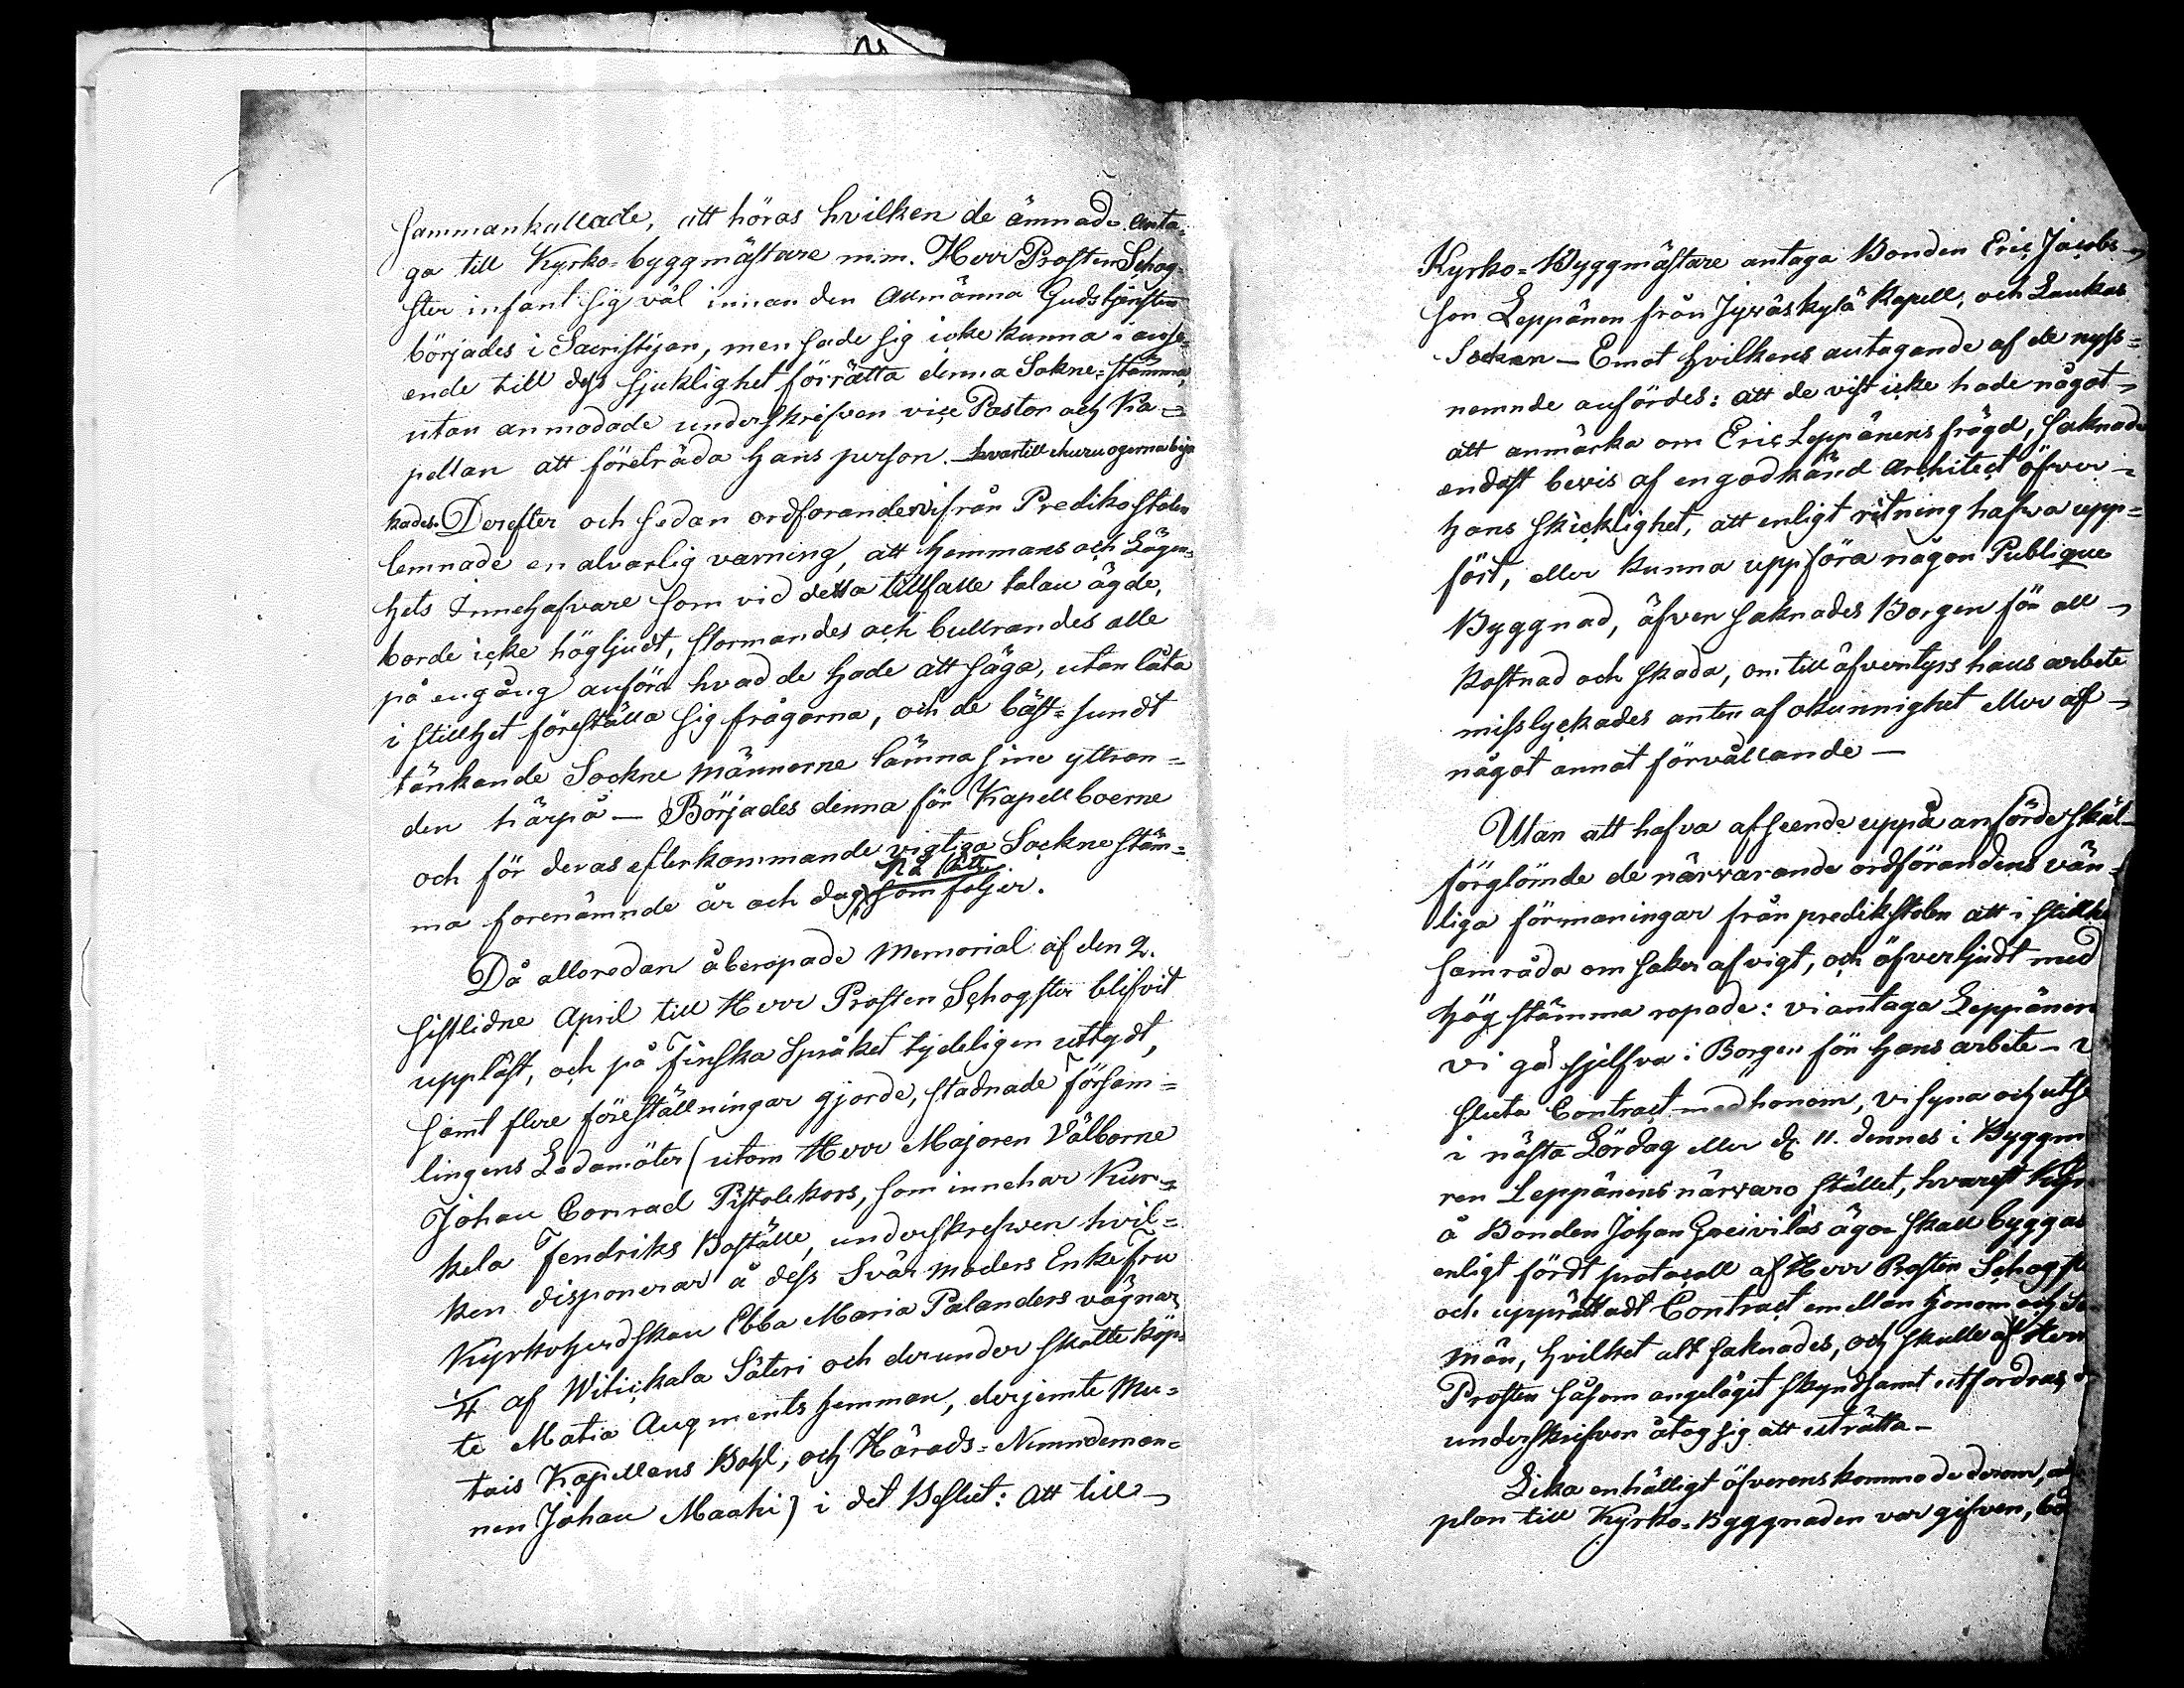 sammankallade, att höras hvilken de ämnade anta-
ga till Kyrko-byggmästare m.m. Herr Prosten Schog-
ster infant sig väl innan den Allmänna Gudstjensten
börjades i Sacristijan, men sade sig icke kunna i anse-
ende till dess sjuklighet förrätta denna Sokne-stämma,
utan anmodade underskrifven vice Pastor och Ka-
pellan att företräda hans person. – hvartill churu ogerna bija
kades. Derefter och sedan ordföranden ifrån Predikostolen
lemnade en alvarlig varning, att Hemmans och Lägen-
hets Innehafvare som vid detta tillfälle talan ägde,
borde icke högljudt, stormandes och bullrandes alle
på engång anföra hvad de hade att säga, utan låta
i stillhet föreställa sig frågorna, och de bäst-sundt
tänkande Sockne männerne lämna sine yttran-
den härpå – Började denna för Kapellboerne
och för deras efterkommande vigtiga Sockne stäm-
på sätt
ma forenämnde år och dag, som foljer.
Då alloredan åberopade Memorial af den 2.
sistlidne April till Herr Prosten Schogster blifvit
uppläst, och på Finska Språket tydeligen uttydt,
samt flere föreställningar gjorde, stadnade Försam-
lingens Ledamöter (utom Herr Majoren Välborne
Johan Conrad Pistolekors, som innehar Kur-
kela Fendriks Boställe, underskrefwen hvil-
ken disponerar å dess Svär moders Enkefru
Kyrkoherdskan Ebba Maria Palanders vägnar
1/4 af Witickala Säteri och derunder skatteköp-
te Matia Augments hemman, derjemte Mu-
tais Kapellans Bohl, och Härads-Nemndeman-
nen Johan Maahi) i det Beslut: Att till
Kyrko-Byggmästare antaga Bonden Eric Jacobs-
son Leppänen från Jywäskylä Kapell, och Laukas
Sockan – Emot hvilkens antagande af de nyss-
nemnde anfördes: att de vist icke hade något
att anmärka om Eric Leppänens frägd, saknade
endast bevis af en godkänd Architect öfver
hans skicklighet, att enligt ritning hafva upp-
fört, eller kunna uppföra någon Publique
Byggnad, äfven saknades Borgen för all
kostnad och skada, om till äfventyrs hans arbete
misslyckades anten af okunnighet eller af
något annat förvållande –
Utan att hafva afseende uppå anförde skäl
förglömde de närvarande ordförandens vän-
liga förmaningar från predikstolen att i stillh
samråda om saker af vigt, och öfverljudt med
hög stämma ropade: vi antaga Leppänen
vi gå sjelfva i Borgen för hans arbete – v
sluta Contract med honom, vi syna och utse
i nästa Lördag eller d. 11. dennes i Byggm
ren Leppänens närvaro stället, hvarest Kyr
å Bonden Johan Greivilas ägor skall byggas
enligt fördt protocoll af Herr Prosten Schogst
och upprättadt Contract emellan honom och So
män, hvilket allt saknades, och skulle af Herr
Prosten såsom angeläget skyndsamt utfordras,
underskrifven åtog sig att uträtta –
Lika enhälligt öfverenskommo de derom, at
plan till Kyrko-Byggnaden var gifven, bö